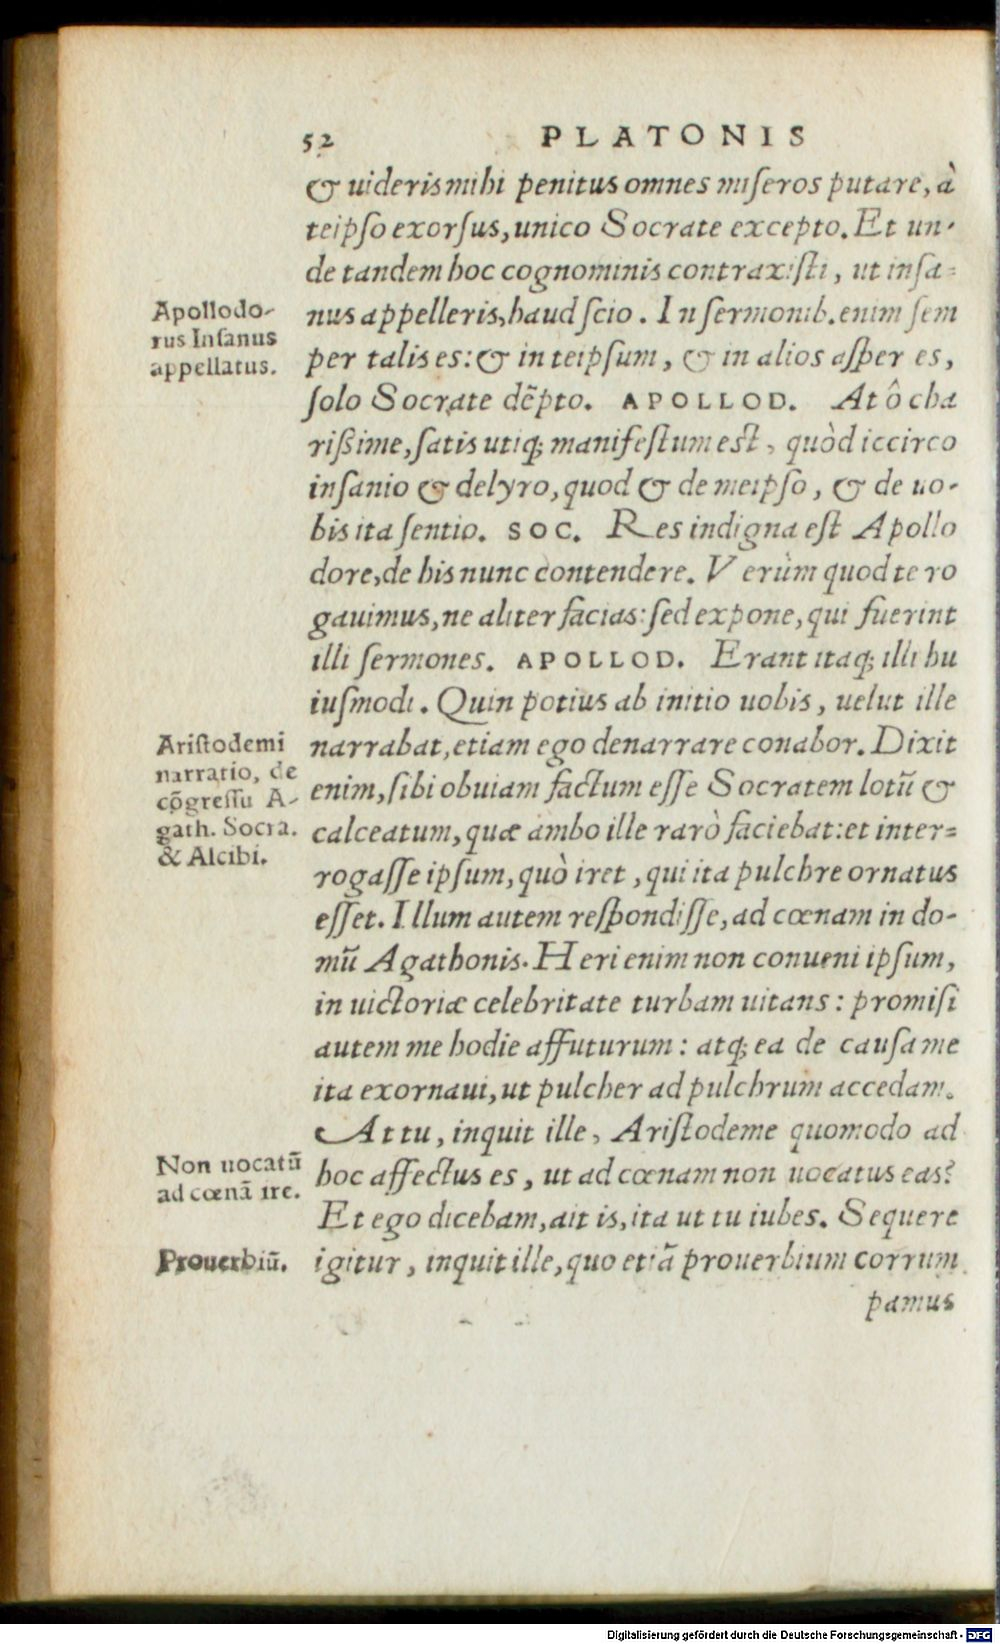 52 PLATONIS
& uideris mihi penitus omnes miſeros putare, à
teipſo exorſus, unico Socrate excepto. Et un-
de tandem hoc cognominis contraxiſti, ut inſa-
nus appelleris, haud ſcio. In ſermonib. enim ſem
per talis es: & in teipſum, & in alios aſper es,
ſolo Socrate dẽpto. APOLLOD. At ô cha
rißime, ſatis utiq; manifeſtum eſt, quòd iccirco
inſanio & delyro, quod & de meipſo, & de uo-
bis ita ſentio. SOC. Res indigna eſt Apollo
dore, de his nunc contendere. Verùm quod te ro
gauimus, ne aliter facias: ſed expone, qui fuerint
illi ſermones. APOLLOD. Erant itaq; illi hu
iuſmodi. Quin potius ab initio uobis, uelut ille
narrabat, etiam ego denarrare conabor. Dixit
enim, ſibi obuiam factum eſſe Socratem lotũ &
calceatum, quæ ambo ille rarò faciebat: et inter-
rogaſſe ipſum, quò iret, qui ita pulchre ornatus
eſſet. Illum autem reſpondiſſe, ad cœnam in do-
mũ Agathonis. Heri enim non conueni ipſum,
in uictoriæ celebritate turbam uitans: promiſi
autem me hodie affuturum: atq; ea de cauſa me
ita exornaui, ut pulcher ad pulchrum accedam.
At tu, inquit ille, Ariſtodeme quomodo ad
hoc affectus es, ut ad cœnam non uocatus eas?
Et ego dicebam, ait is, ita ut tu iubes. Sequere
igitur, inquit ille, quo etiã prouerbium corrum
pamus
Apollodo-
rus Inſanus
appellatus.
Ariſtodemi
narratio, de
cõgreſſu A-
gath. Socra.
& Alcibi.
Non uocatũ
ad cœnã ire.
Prouerbiũ.
Digitalisierung gefördert durch die Deutsche Forschungsgemeinschaft - DFG